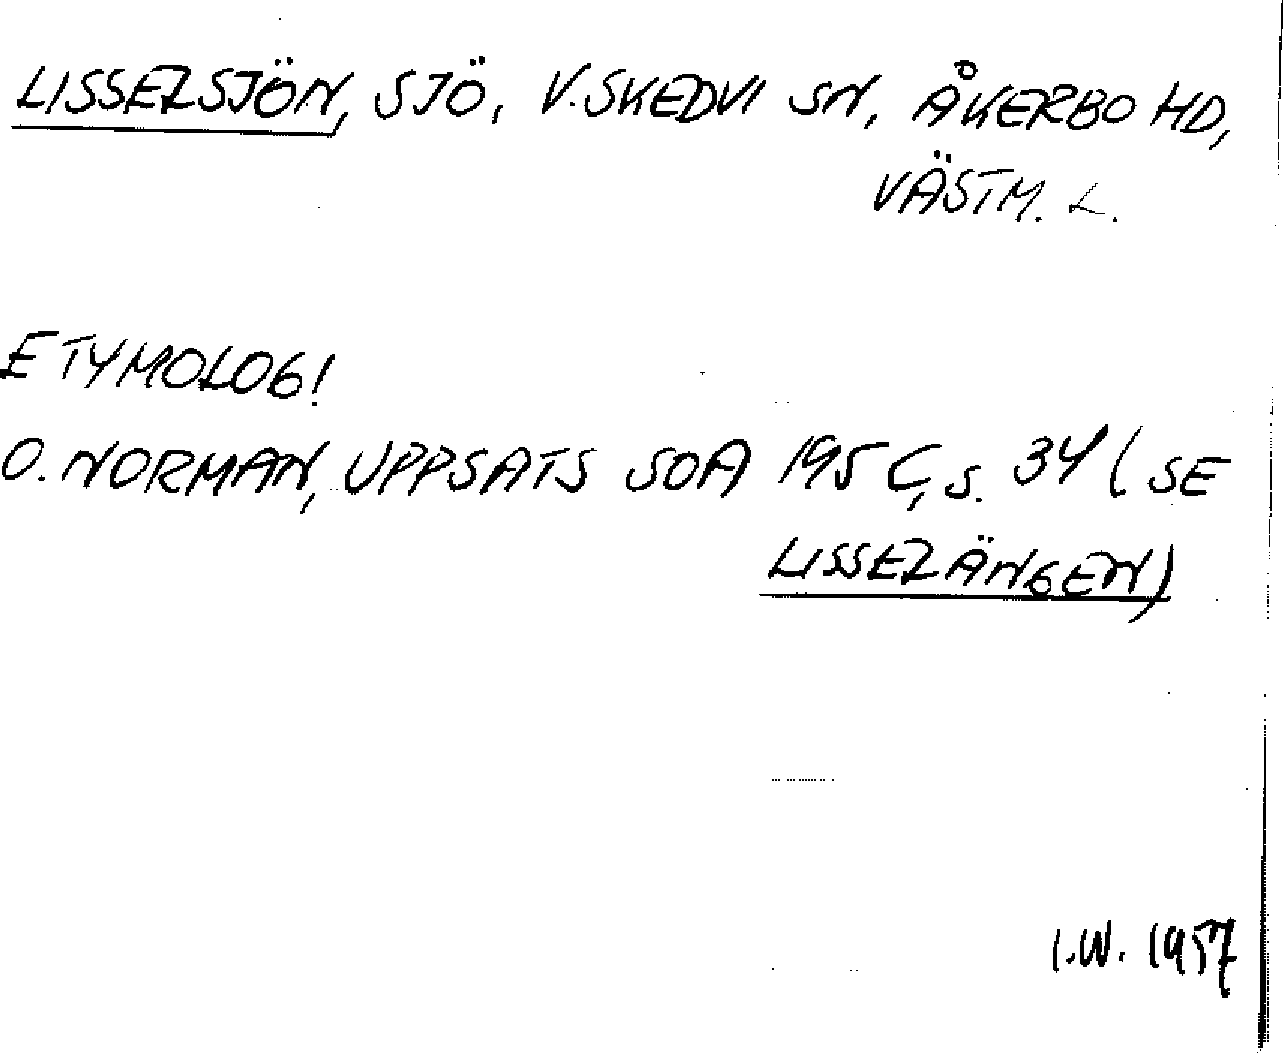 LISSELSJÖN, SJÖ, V. SKEDVI SN, ÅKERBO HD,
VÄSTM. L.
ETYMOLOGI
O. NORMAN, UPPSATS SOA 195 C, S. 34 (SE
LISSELÄNGEN)
I.W. 1957